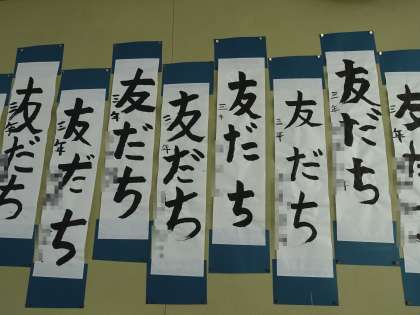 友だち
三年
友だち
三年
友だち
三年
友だち
三年
友だち
三年
友だち
三年
友だち
三年
友だち
年